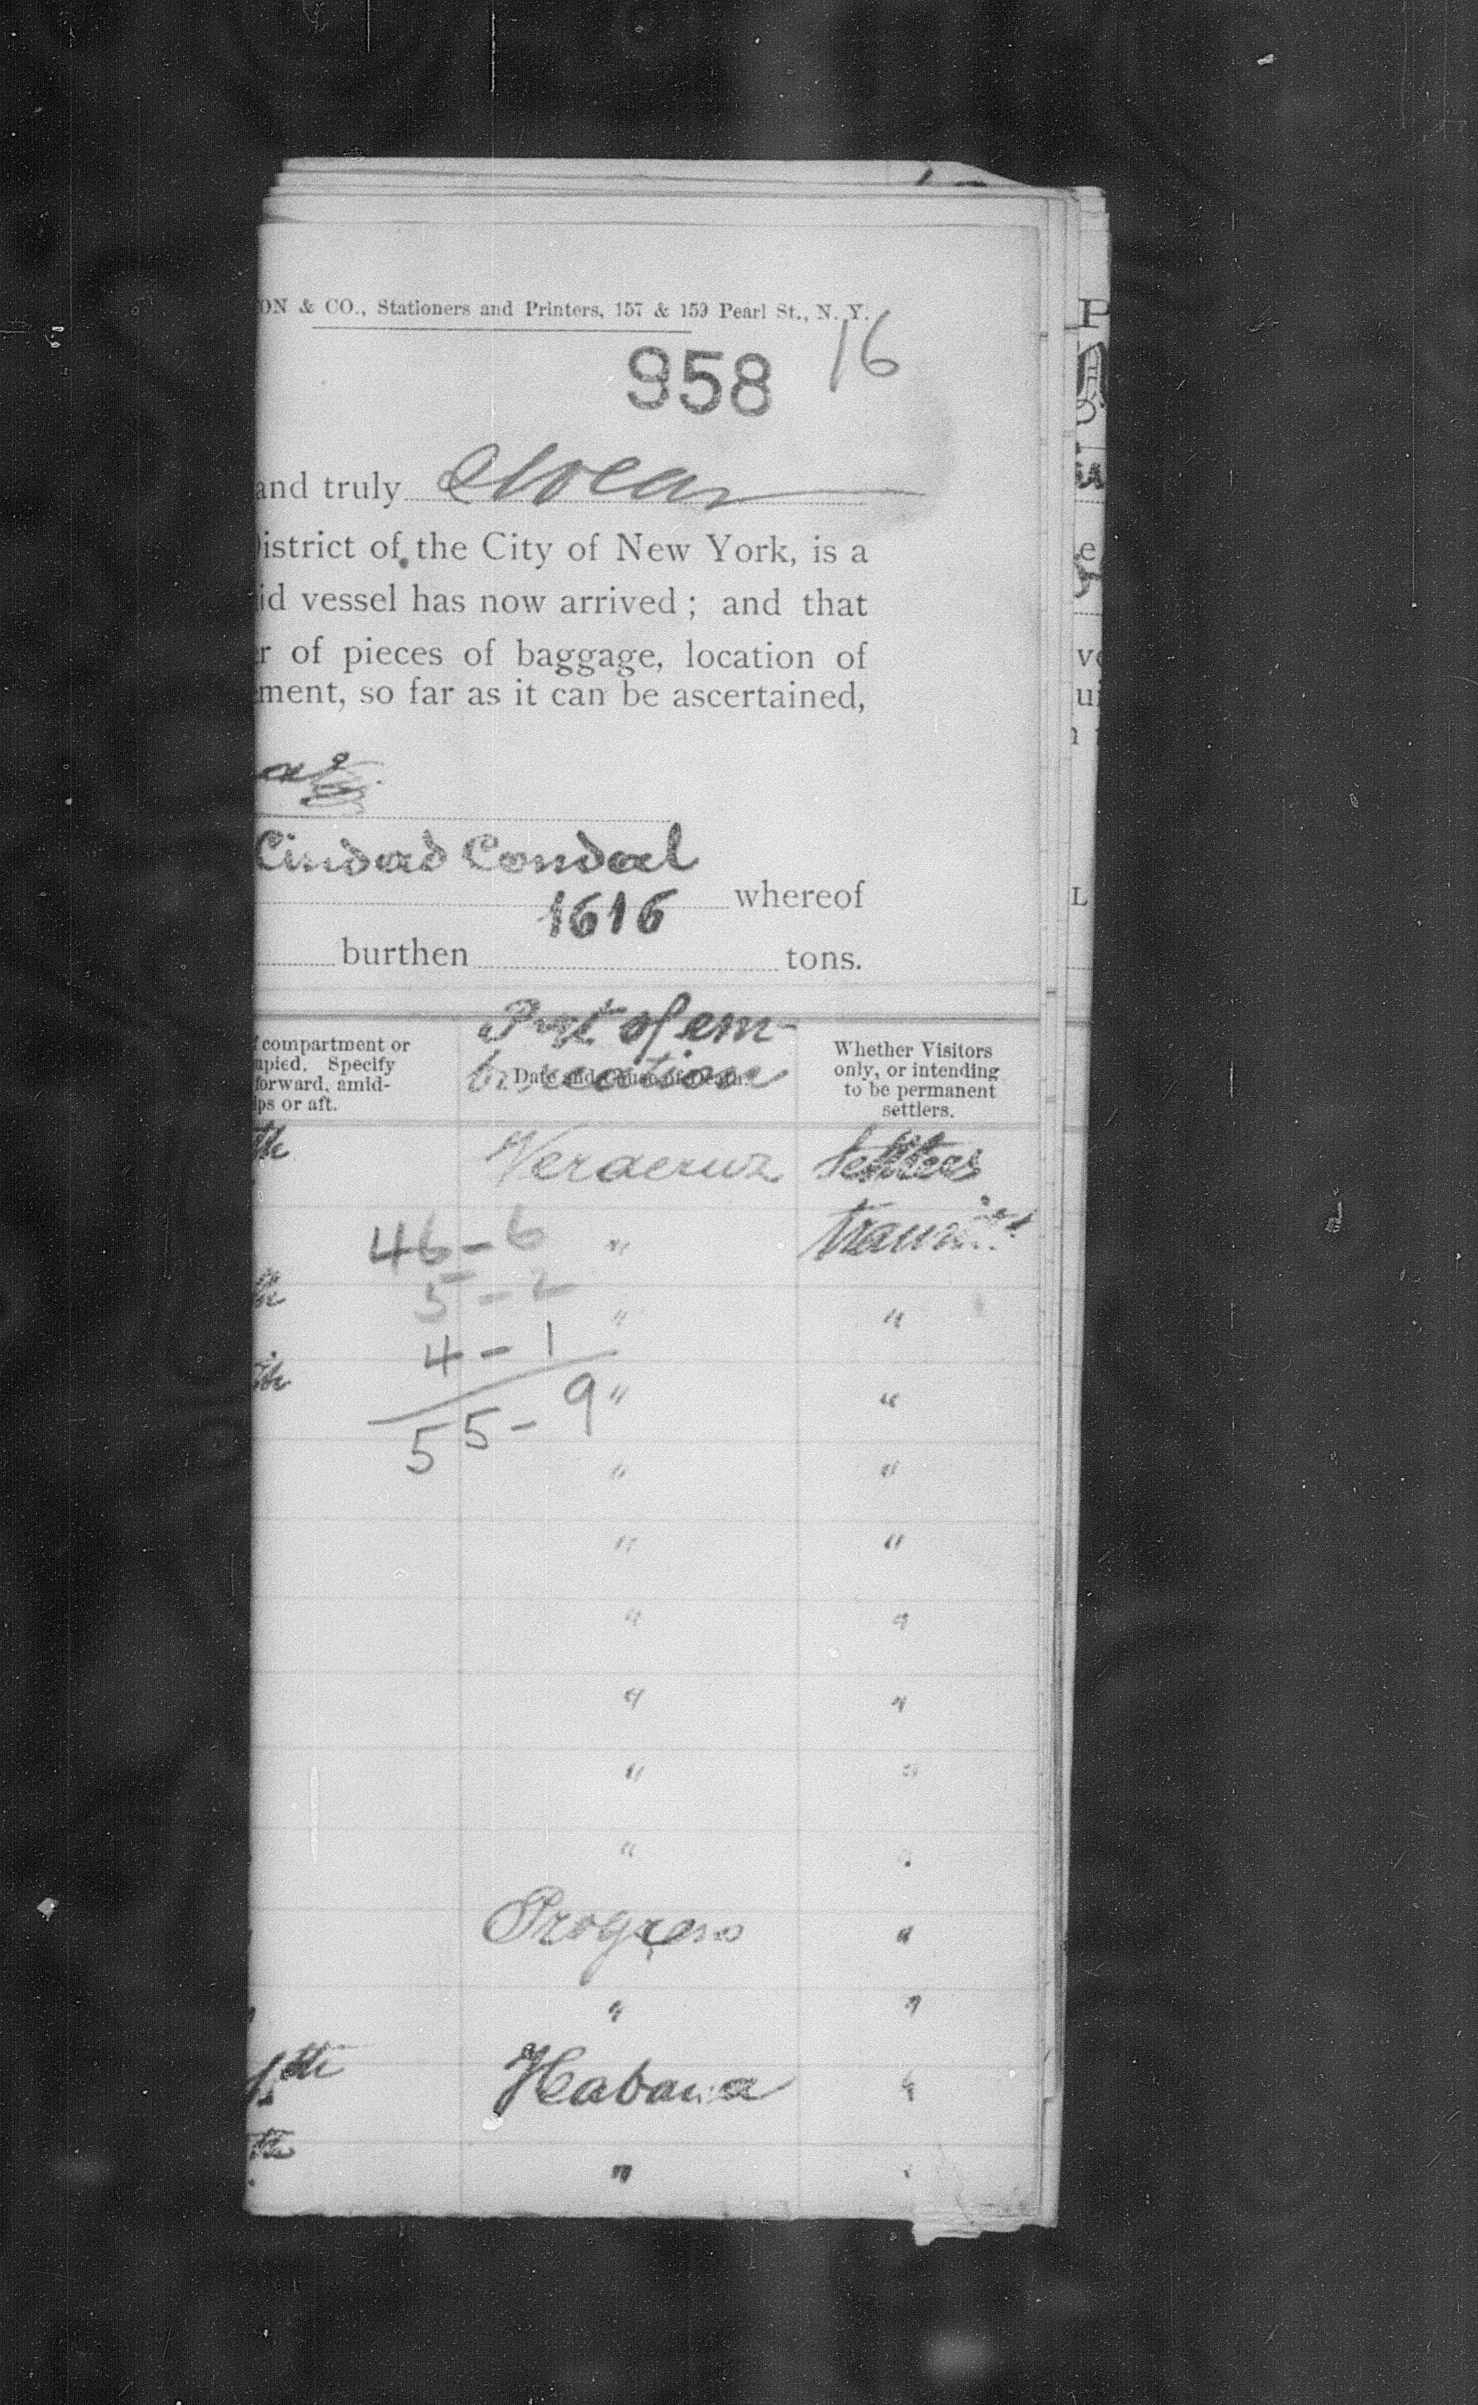 ON & CO., Stationers and Printers, 157 & 159 Pearl St., N. Y.
958 16
and truly swear
District of the City of New York, is a
id vessel has now arrived; and that
r of pieces of baggage, location of
ment, so far as it can be ascertained,
Ciudad Condal
whereof
1616
burthen tons.
Port of em-
barcation
compartment or
upied. Specify
forward, amid-
ips or aft.
Date and Cause of Death.
Whether Visitors
only, or intending
to be permanent
settlers.
th Veracruz Settlers
46-6 " transit
5-2 " "
4-1
" "
55-9
" "
" "
" "
" "
" "
"
Progreso "
" "
th Habana "
th "
P
e
L